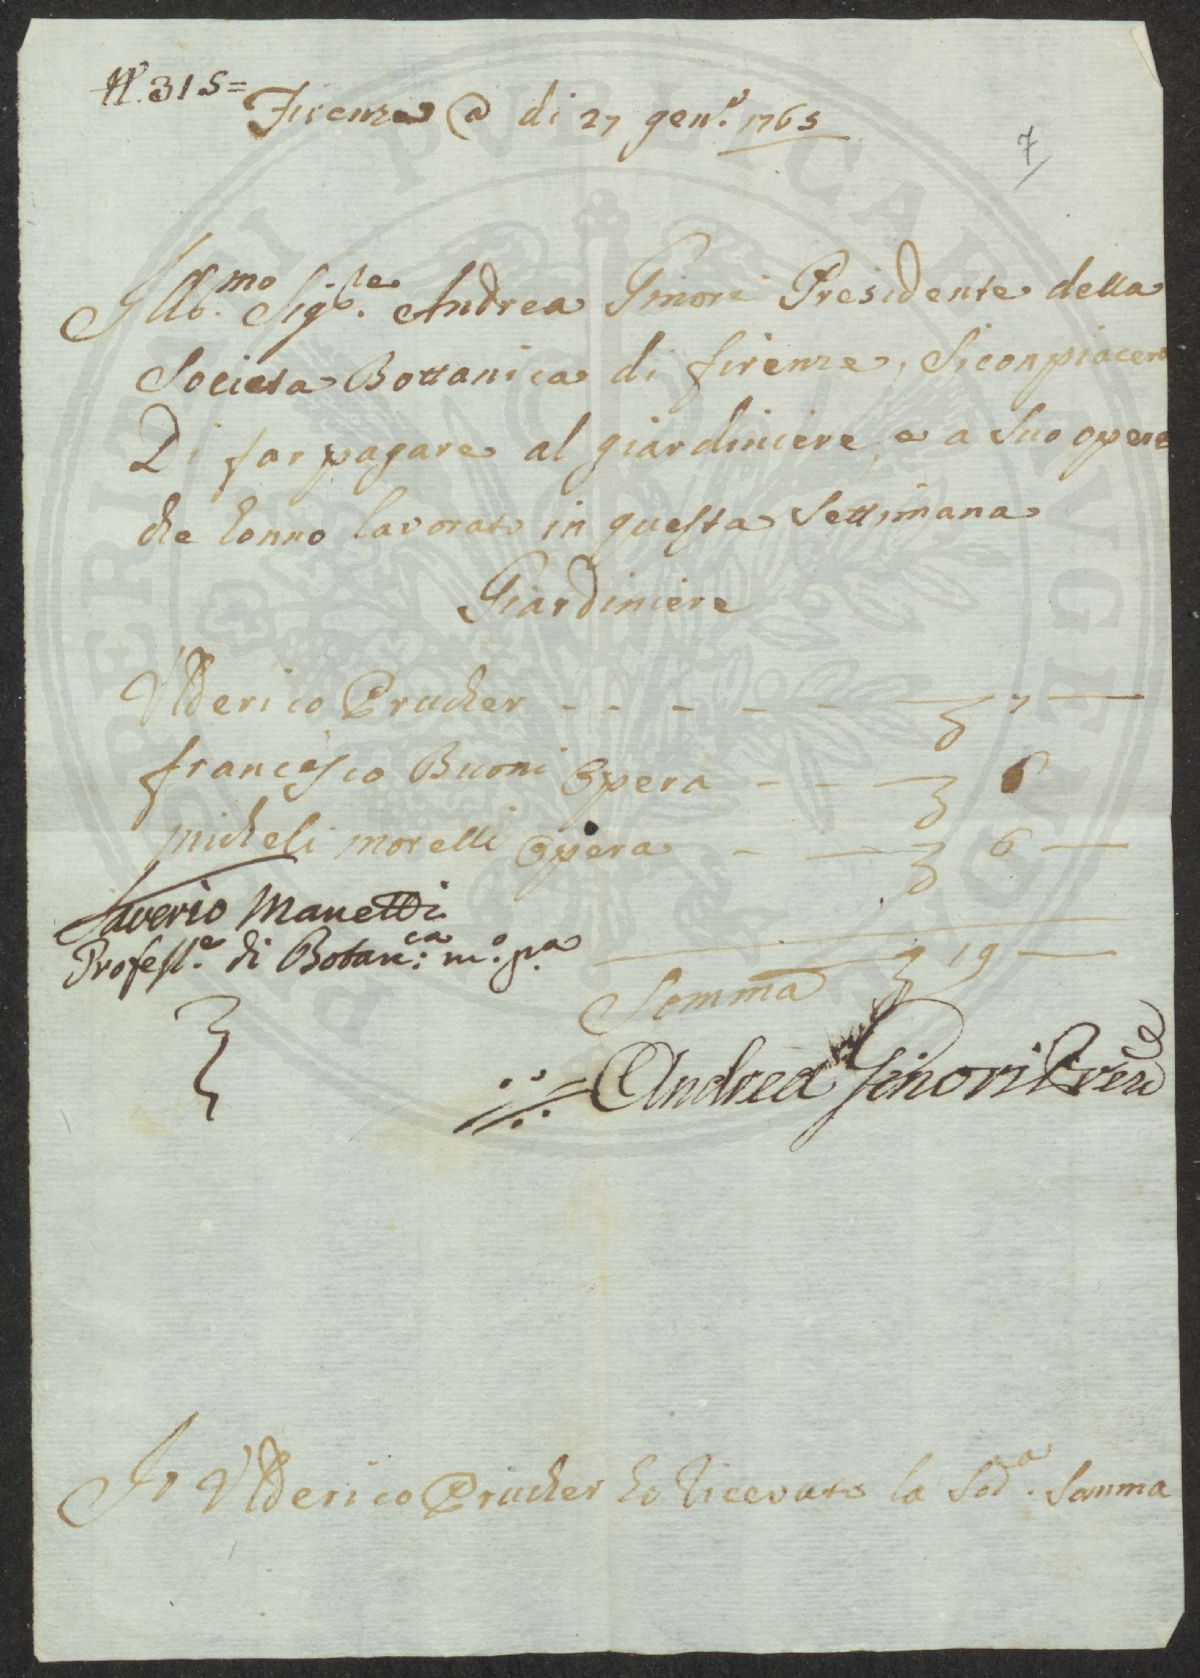 N.° 315=
Firenze @ di 27 gen.° 1765
7
Illus.mo Sig.re Andrea Ginori Presidente della
Societa Bottanica di firenze, Siconpiacera
Di far pagare al giardiniere, e a Suo opere
che hanno lavorato in questa Settimana
Giardiniere
Ulderico Prucher - - - - - - 7 —
francesco Buoni Opera - - - 6
micheli morelli Opera - - 6 —
Saverio Manetti
Profess.e di Botan.ca m.o p.a
19 —
Somma
Andrea Ginori Preside
Io Ulderico Prucher ho Ricevuto la Sod.a Somma